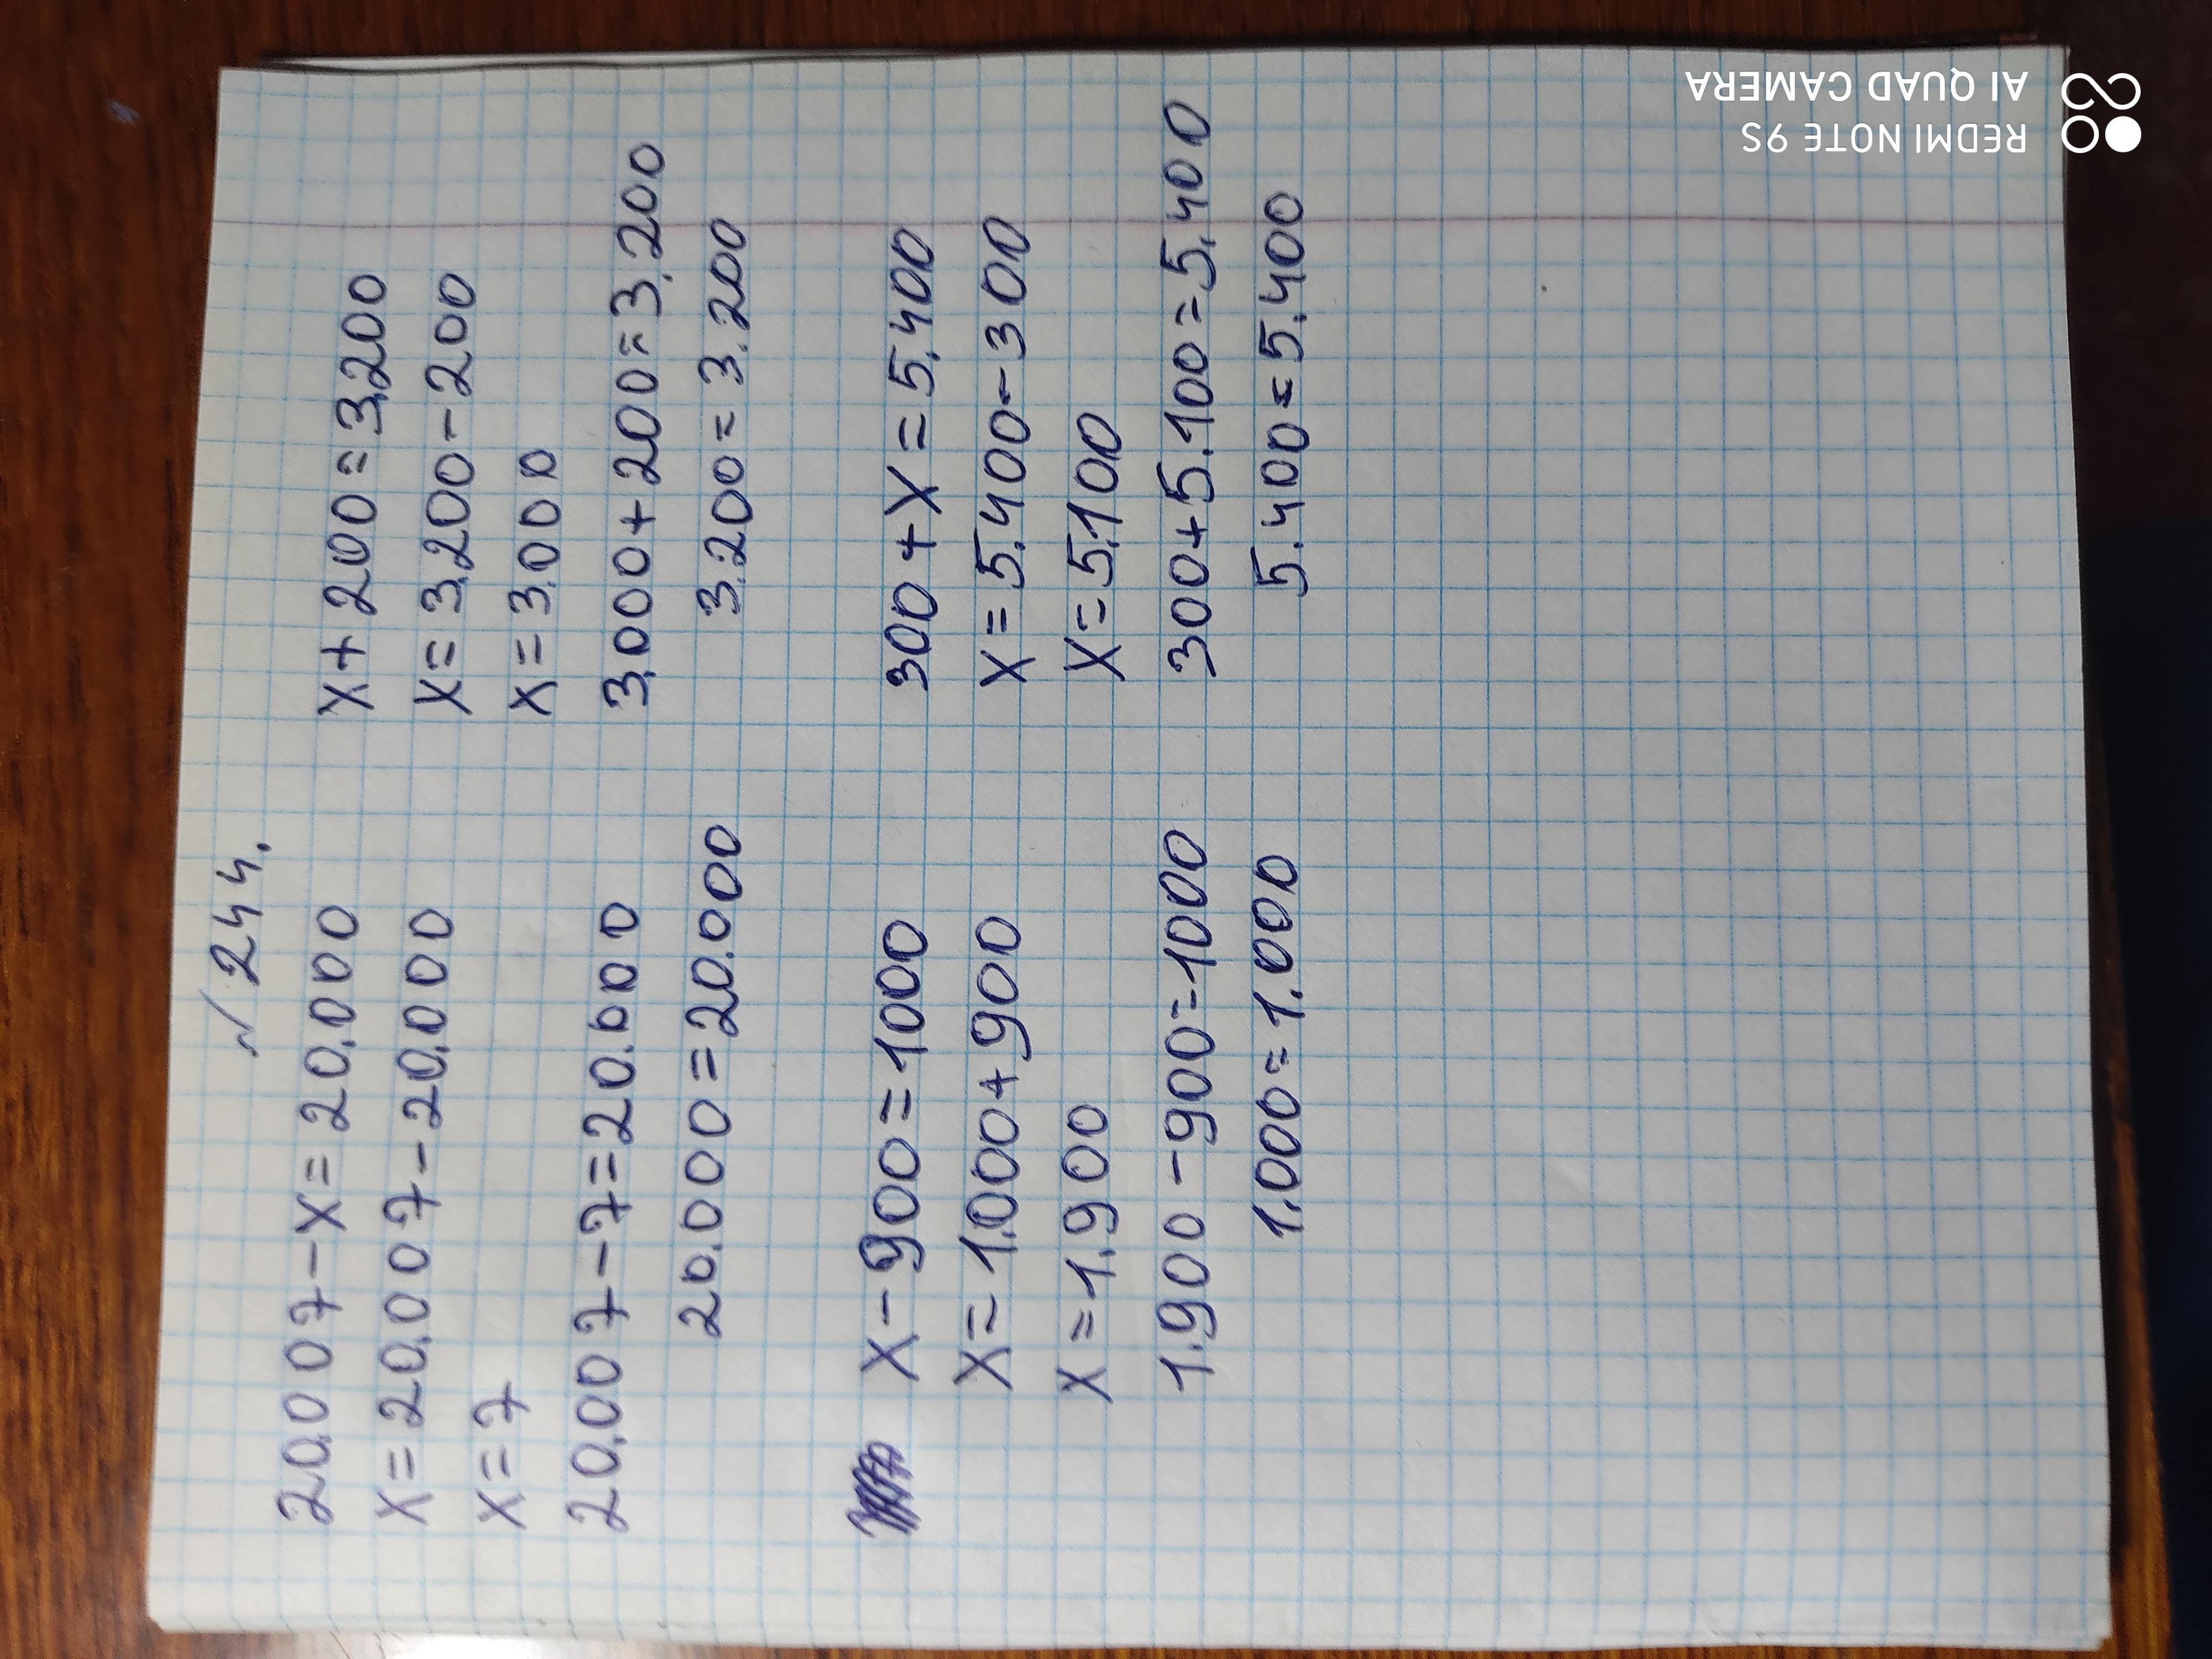 № 244.
20.007-x=20.000
x=20.007-20.000
x=7
20.007-7=20.000
20.000=20.000
x+200=3.200
x=3.200-200
x=3.000
3.000+200=3.200
3.200=3.200
x-900=1000
x=1.000+900
x=1.900
1.900-900=1000
1.000=1.000
300+x=5.400
x=5.400-300
x=5.100
300+5.100=5.400
5.400=5.400
REDMI NOTE 9S
AI QUAD CAMERA